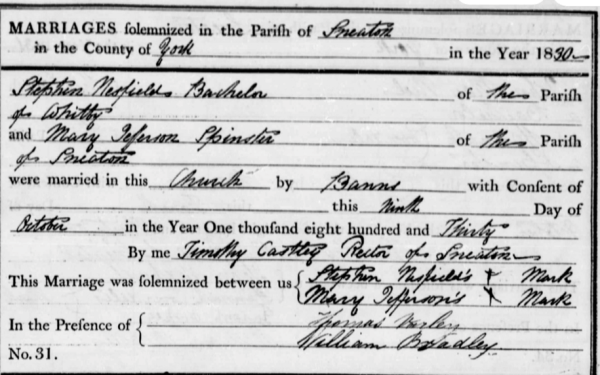 MARRIAGES ſolemnized in the Pariſh of Sneaton
in the County of York in the Year 1830
Stephen Nesfield Bachelor of the Pariſh
of Whitby
and Mary Jefferson Spinster of the Pariſh
of Sneaton
were married in this Church by Banns with Conſent of
this Ninth Day of
October in the Year One thouſand eight hundred and Thirty
By me Timothy Castley Rector of Sneaton
This Marriage was ſolemnized between us { Stephen Nesfield's X Mark
Mary Jefferson's X Mark
In the Preſence of { Thomas
William Bradley
No. 31.